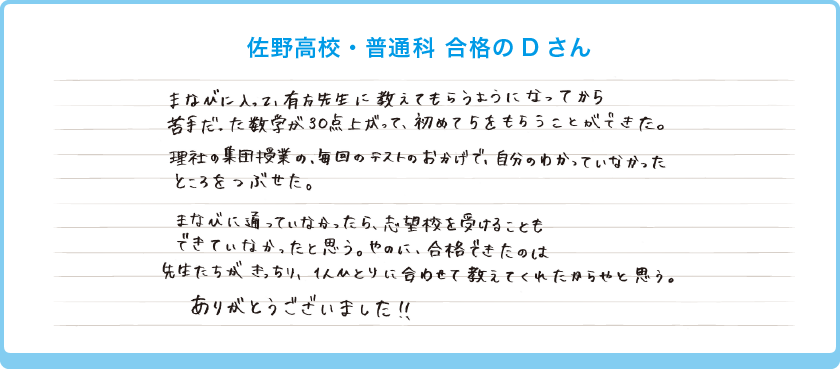 佐野高校・普通科 合格のDさん
まなびに入って、有方先生に教えてもらうようになってから
苦手だった数学が30点上がって、初めて5をもらうことができた。
理社の集団授業の、毎回のテストのおかげで、自分のわかっていなかった
ところをつぶせた。
まなびに通っていなかったら、志望校を受けることも
できていなかったと思う。やのに、合格できたのは
先生たちがきっちり、1人ひとりに合わせて教えてくれたからやと思う。
ありがとうございました!!